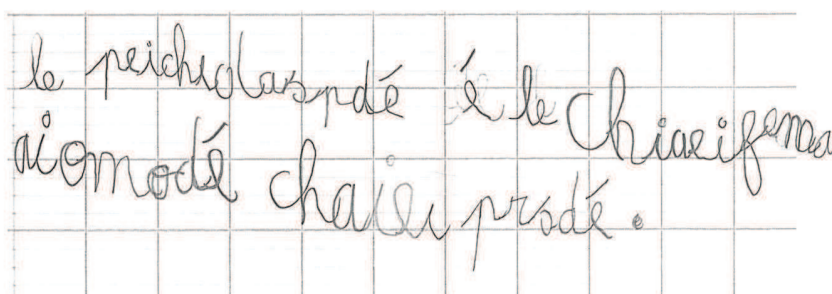 le peichiolaspdé é le Chiaeifenaa
aiomodé chaiei prsdé.